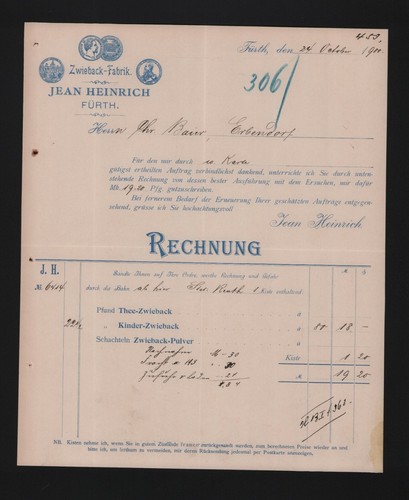 453.
Zwieback-Fabrik.
JEAN HEINRICH
FÜRTH.
Fürth, den 24 October 1900
306/
Herrn Chr Baur, Erbendorf
Für den mir durch
gütigst ertheilten Auftrag verbindlichst dankend, unterrichte ich Sie durch unten-
stehende Rechnung von dessen bester Ausführung mit dem Ersuchen, mir dafür
Mk. 19.20 Pfg. gutzuschreiben.
Bei fernerem Bedarf der Erneuerung Ihrer geschätzten Aufträge entgegen-
sehend, grüsse ich Sie hochachtungsvoll
Jean Heinrich
RECHNUNG
J. H.
Sandte Ihnen auf Ihre Ordre, werthe Rechnung und Gefahr
№ 6414 durch die Bahn ab hier 1 Kiste enthaltend:
Pfund Thee-Zwieback à
22½ " Kinder-Zwieback à 80 18 —
Schachteln Zwieback-Pulver à
Nachnahme M - 30
Kiste 1 20
M 19 20
NB. Kisten nehme ich, wenn Sie in gutem Zustande franco zurückgesandt werden, zum berechneten Preise wieder an und
bitte ich, um Irrthum zu vermeiden, mir deren Rücksendung jedesmal per Postkarte anzuzeigen.